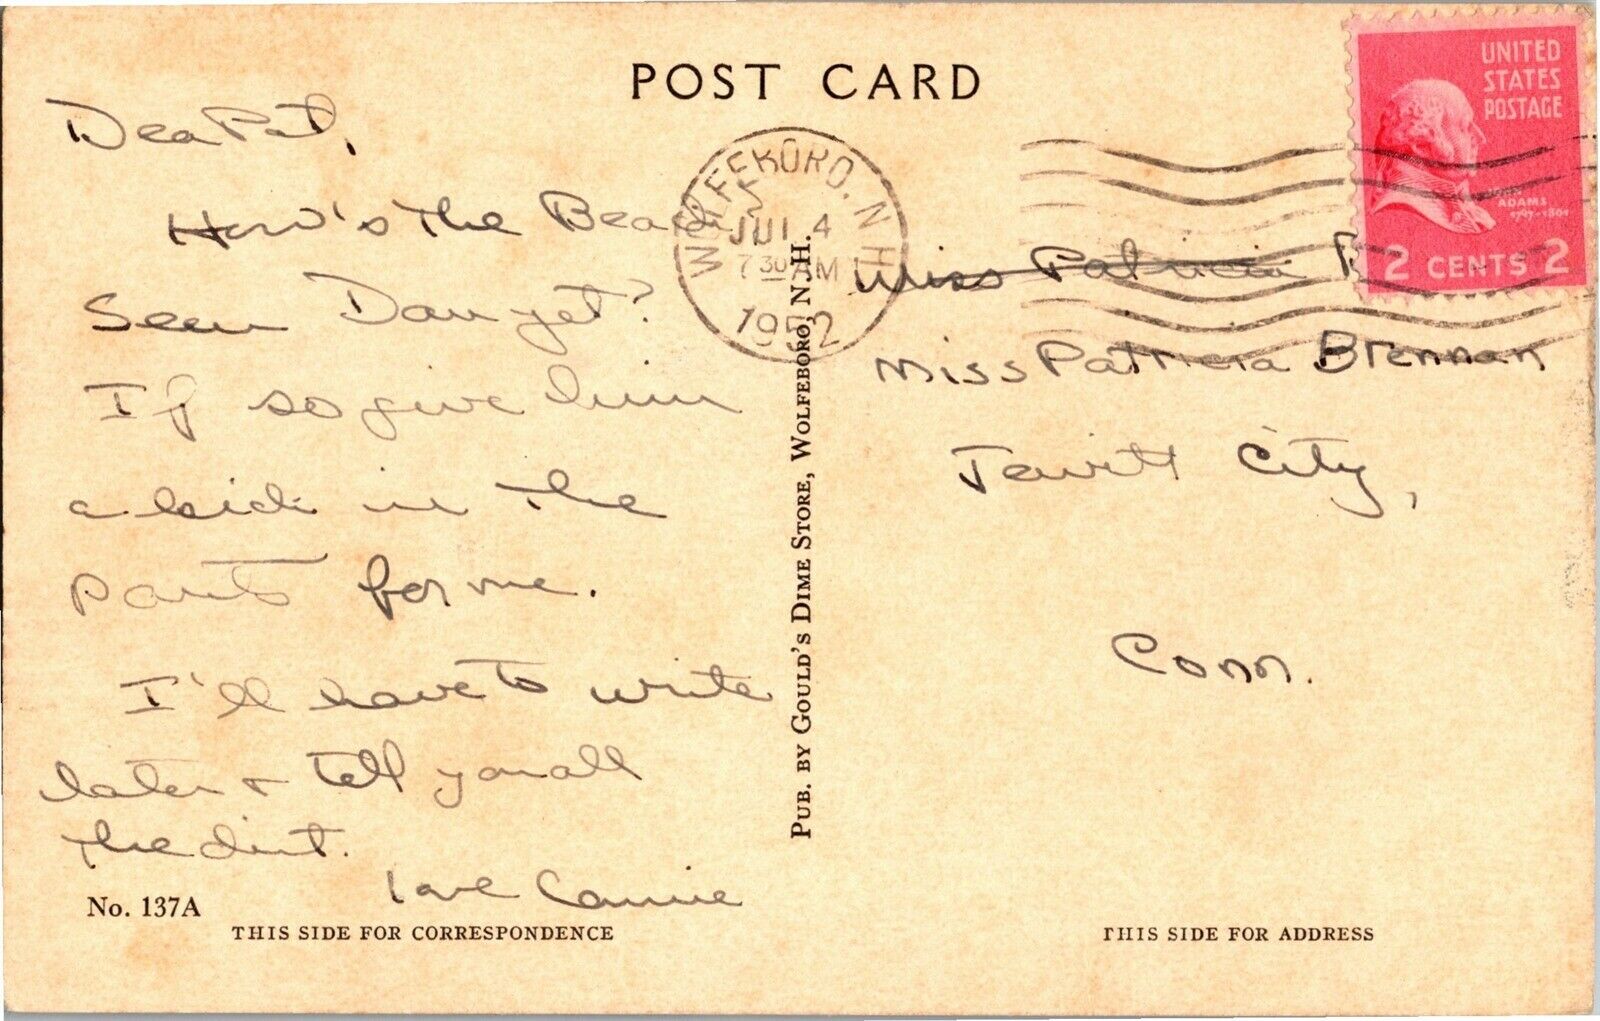 POST CARD
Dear Pat,
How's the Beach,
Seen Dan yet?
If so give him
a kick in the
pants for me.
I'll have to write
later & tell you all
the dirt.
Love Connie
No. 137A
THIS SIDE FOR CORRESPONDENCE
PUB. BY GOULD'S DIME STORE, WOLFEBORO, N. H.
WOLFEBORO, N.H.
JUL 4
7 30 AM
1952
UNITED
STATES
POSTAGE
JOHN
ADAMS
1797-1801
2 CENTS 2
Miss Patricia B
Miss Patricia Brennan
Jewitt City,
Conn.
THIS SIDE FOR ADDRESS